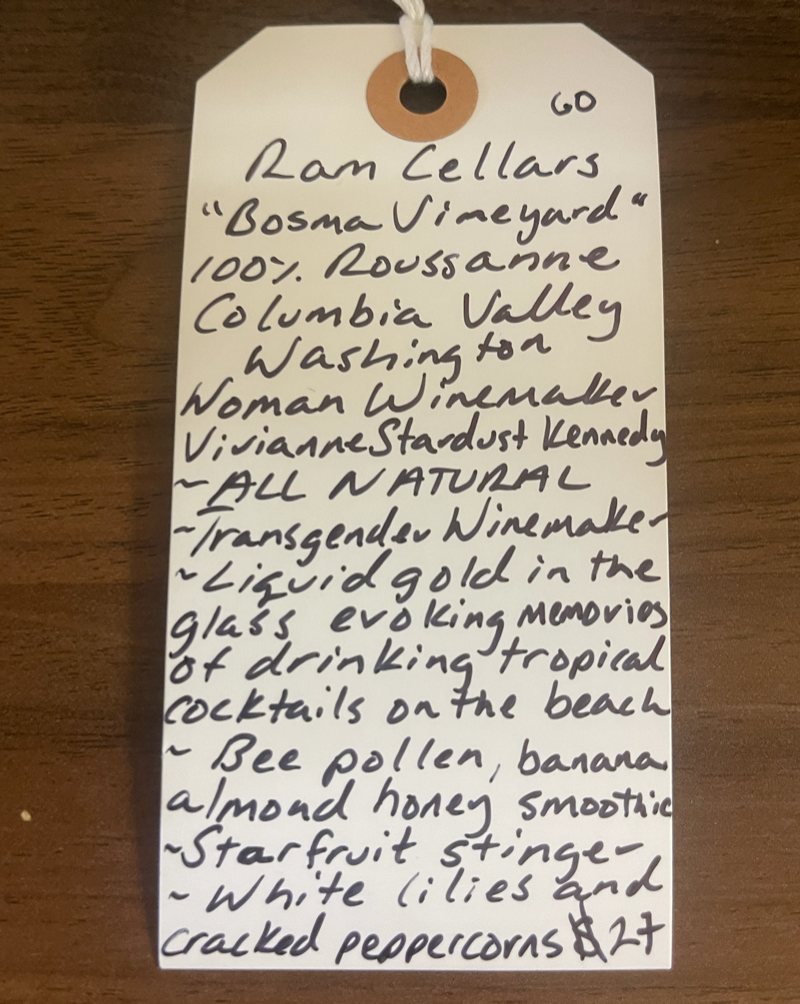 60
Ram Cellars
"Bosma Vineyard"
100% Roussanne
Columbia Valley
Washington
Woman Winemaker
Vivianne Stardust Kennedy
~ALL NATURAL
~Transgender Winemaker
~Liquid gold in the
glass evoking memories
of drinking tropical
cocktails on the beach
~ Bee pollen, banana
almond honey smoothie
~Starfruit stinger
~ White lilies and
cracked peppercorns $27